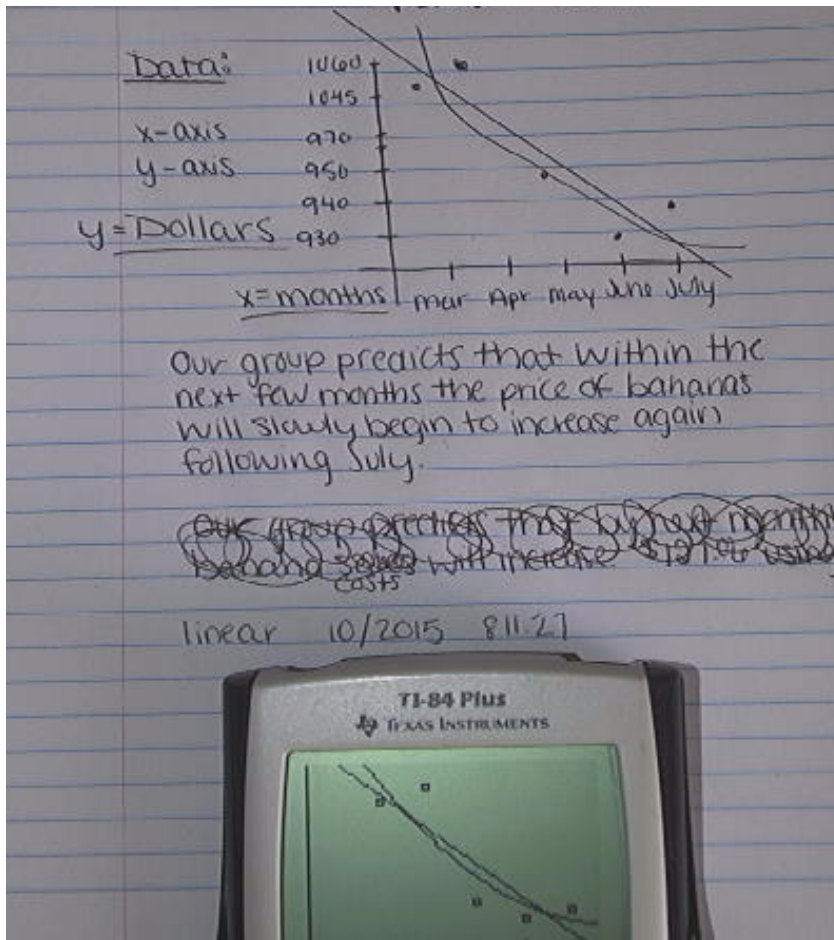 Data:
1060
1045
x-axis
970
y-axis
950
940
y = Dollars
930
x = months
mar Apr may June July
Our group predicts that within the
next few months the price of bananas
will slowly begin to increase again
following July.
Our group predicts that by next month
banana will increase
costs
linear 10/2015 811.27
TI-84 Plus
TEXAS INSTRUMENTS